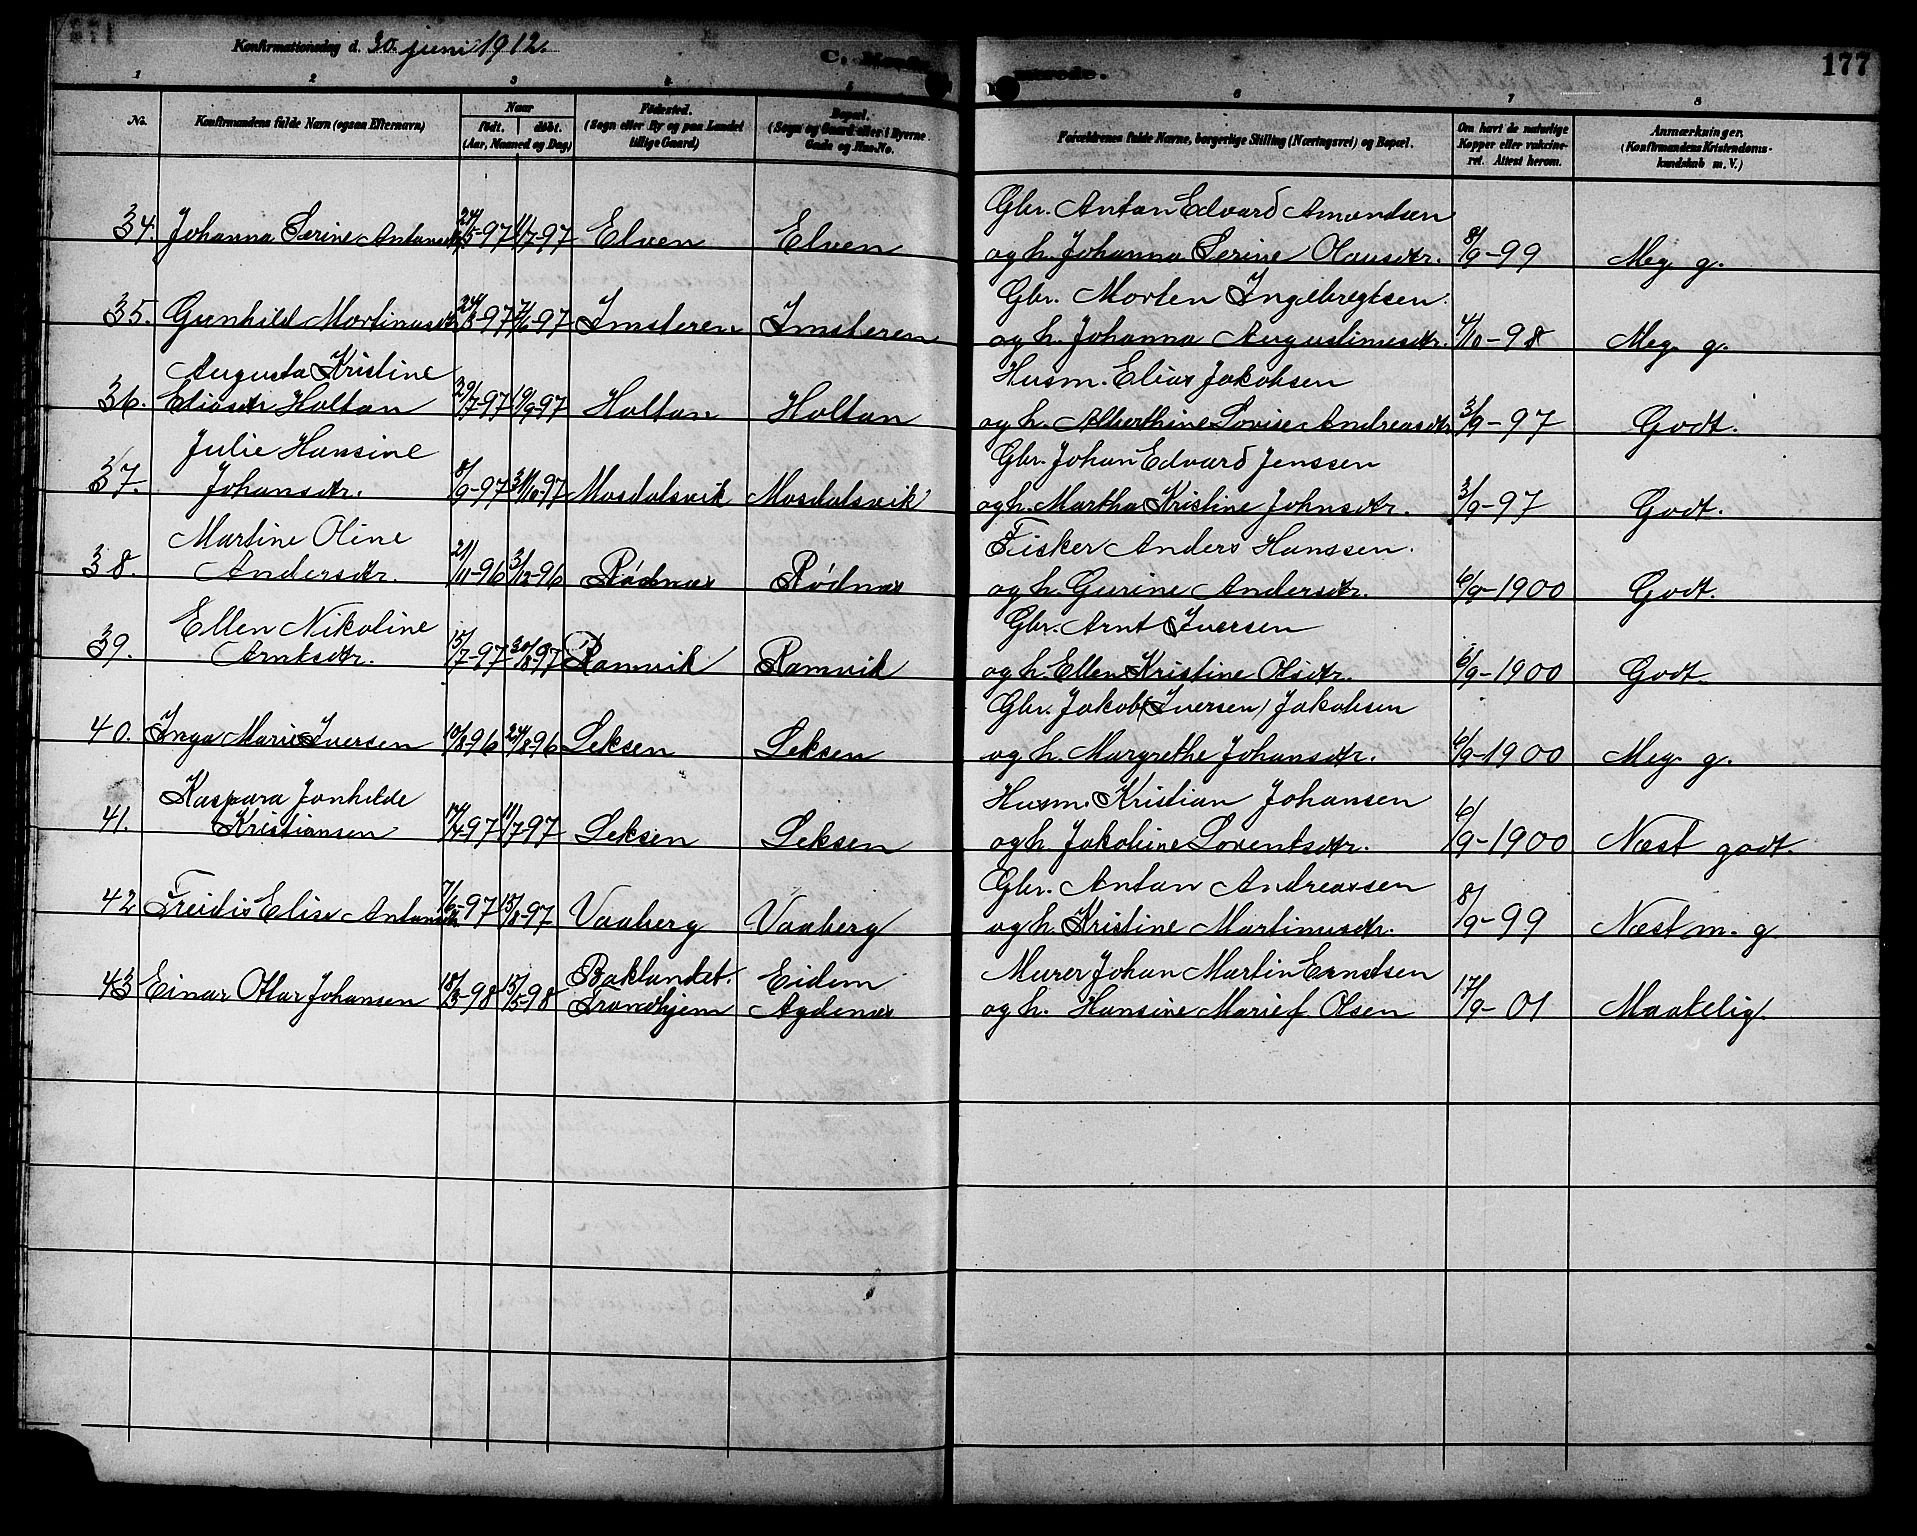 Konfirmationsdag d. 30. juni 1912.
C. Konfir
merede.
177
1 2 3 4 5 6 7 8
No.
Konfirmandens fulde Navn (ogsaa Efternavn)
Naar
født. døbt.
(Aar, Maaned og Dag)
Fødested.
(Sogn eller By og paa Landet
tillige Gaard)
Bopæl.
(Sogn og Gaard eller i Byerne
Gade og Hus-No.
Forældrenes fulde Navne, borgerlige Stilling (Næringsvei) og Bopæl.
Om havt de naturlige
Kopper eller vakcine-
ret. Attest herom.
Anmærkninger.
(Konfirmandens Kristendoms-
kundskab m. V.)
Gbr. Anton Edvard Amondsen
34. Johanna Serine Antonsdtr 24/5-97 11/7-97 Elven Elven og h. Johanna Serine Olausdtr. 8/9-99 Meg. g.
Gbr. Morten Ingebregtsen
35. Gunhild Martinusdtr 24/3-97 7/6-97 Imsteren Imsteren og h. Johanna Augustinusdtr. 4/10-98 Meg. g.
Augusta Kristine Husm. Elias Jakobsen
36. Eliasdtr Holtan 29/7-97 19/9-97 Holtan Holtan og h. Alberthine Lovise Andreasdtr 3/9-97 Godt.
Julie Hansine Gbr. Johan Edvard Jenssen
37. Johansdtr. 8/9-97 31/10-97 Mosdalsvik Mosdalsvik og h. Martha Kristine Johnsdtr. 3/9-97 Godt.
Martine Oline Fisker Anders Hanssen.
38. Andersdtr. 21/11-96 3/12-96 Rødnæs Rødnæs og h. Gurine Andersdtr. 6/9-1900 Godt.
Ellen Nikoline Gbr. Arnt Iversen
39. Arntsdtr. 15/7-97 30/8-97 Ramvik Ramvik og h. Ellen Kristine Olsdtr. 6/9-1900 Godt.
Gbr. Jakob (Iversen) Jakobsen
40. Inga Marie Iversen 10/8-96 24/8-96 Leksen Leksen og h. Margrethe Johansdtr. 6/9-1900 Meg. g.
Kaspara Jonhilde Husm. Kristian Johansen
41. Kristiansen 17/4-97 11/7-97 Leksen Leksen og h. Jakobine Lorentsdtr. 6/9-1900 Næst godt.
Gbr. Anton Andreassen
42 Freidis Elise Antonsdtr 7/6-97 15/8-97 Vaaberg Vaaberg og h. Kristine Martinusdtr. 8/9-99 Næst m. g.
Baklandet. Eidem Murer Johan Martin Erndtsen
43 Einar Ottar Johansen 18/3-98 15/5-98 Trondhjem Agdenæs og h. Hansine Marie f. Olsen 17/9-01 Maatelig.